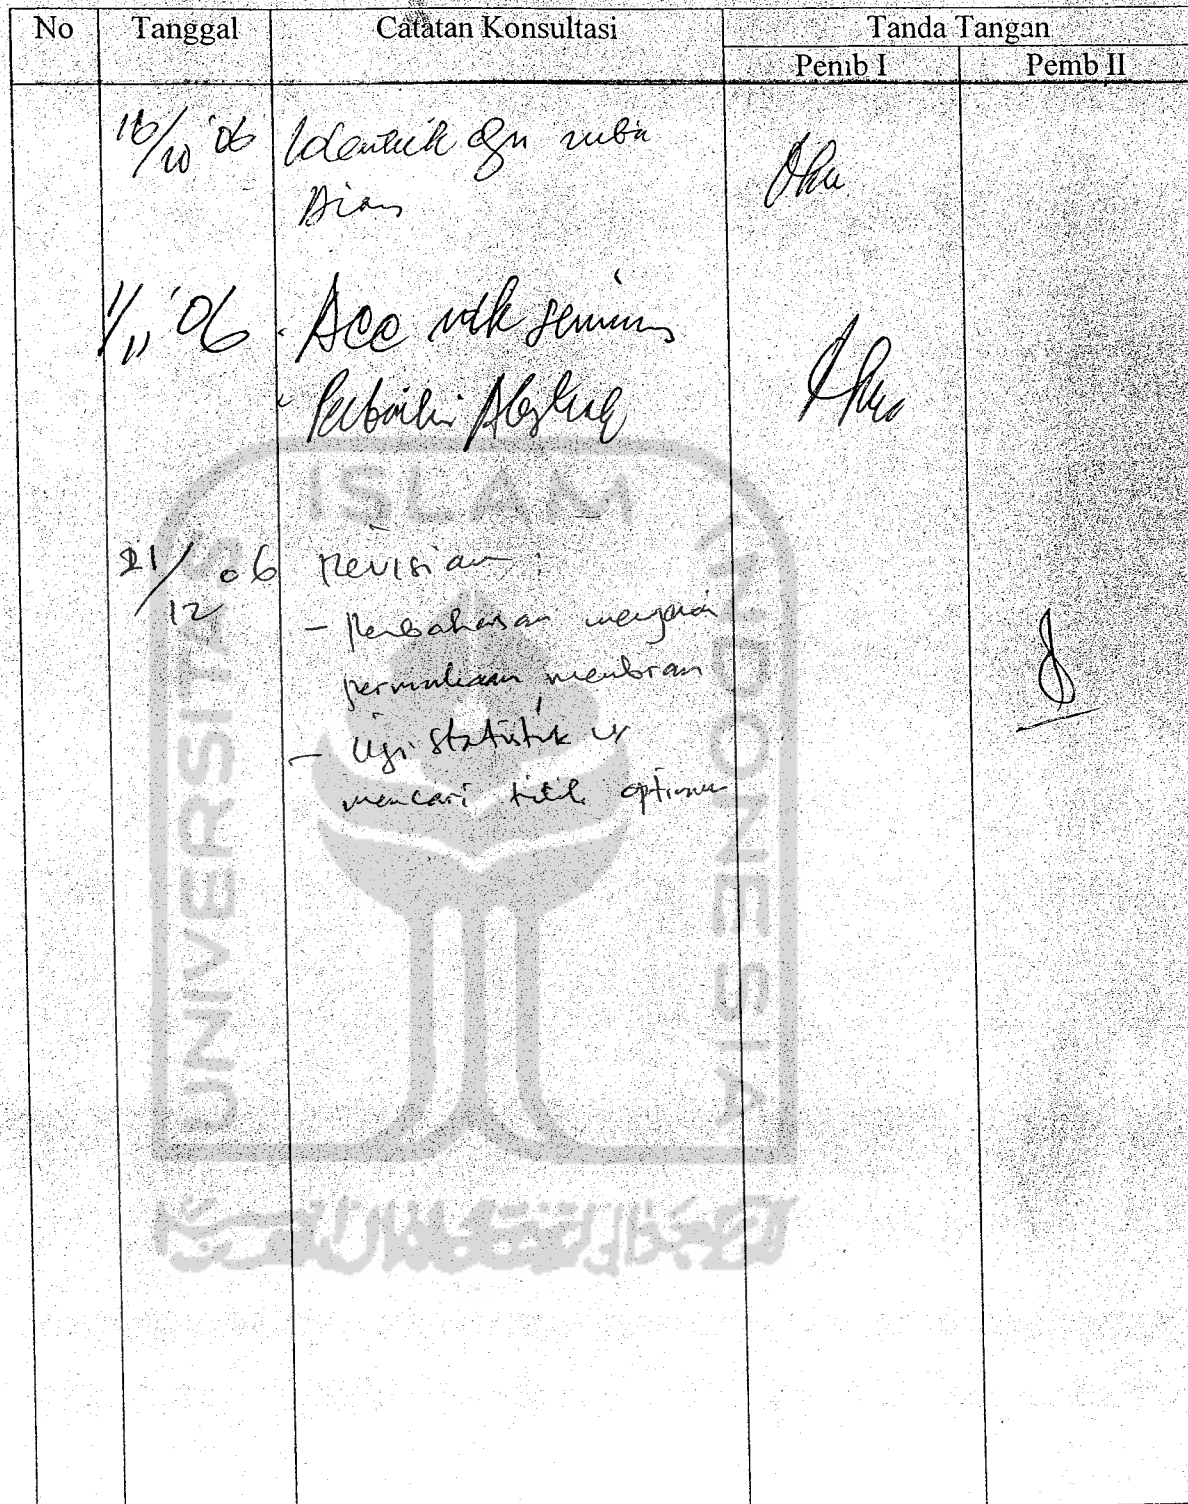 No Tanggal Catatan Konsultasi Tanda Tangan
Pemb I Pemb II
16/10 '06 Identik dgn
Dian
1/11 '06 - Acc utk seminar
- Perbaiki Abstrak
21/12 06 Revisian :
- Pembahasan mengenai
permukaan membran
- Uji statistik
mencari titik optimum
UNIVERSITAS ISLAM INDONESIA